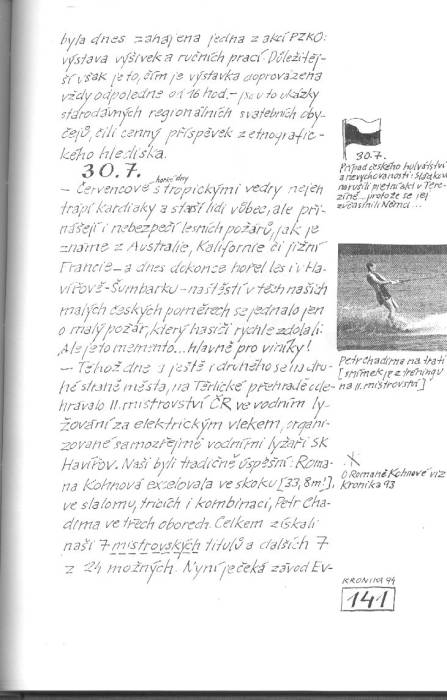 byla dnes zahájena jedna z akcí PZKO:
výstava výšivek a ručních prací. Důležitěj-
ší však je to, čím je výstavka doprovázena
vždy odpoledne od 16 hod. – jsou to ukázky
starodávných regionálních svatebních oby-
čejů, čili cenný příspěvek z etnografic-
kého hlediska.
30.7.
horké dny
– Červencové s tropickými vedry nejen
trápí kardiaky a starší lidi vůbec, ale při-
nášejí i nebezpečí lesních požárů, jak je
známe z Australie, Kalifornie či jižní
Francie – a dnes dokonce hořel les i v Ha-
vířově-Šumbarku – naštěstí v těch našich
malých českých poměrech se jednalo jen
o malý požár, který hasiči rychle zdolali.
Ale je to memento... hlavně pro viníky!
– Téhož dne a ještě i druhého se na dru-
hé straně města, na Těrlické přehradě ode-
hrávalo II. mistrovství ČR ve vodním ly-
žování za elektrickým vlekem, organi-
zované samozřejmě vodními lyžaři SK
Havířov. Naši byli tradičně úspěšní: Roma-
na Kohnová excelovala ve skoku [33,8m!],
ve slalomu, tricích i kombinaci, Petr Cha-
dima ve třech oborech. Celkem získali
naši 7 mistrovských titulů a dalších 7
z 24 možných. Nyní je čeká závod Ev-
30.7.
Případ českého hulvátství
a nevychovanosti: Sládkov
narušili pietní akci v Tere-
zíně... protože se jej
zúčastnili Němci...
Petr Chadima na trati
[snímek je z tréningu
na II. mistrovství]
O Romaně Kohnové viz
Kronika 93
KRONIKA 94
141